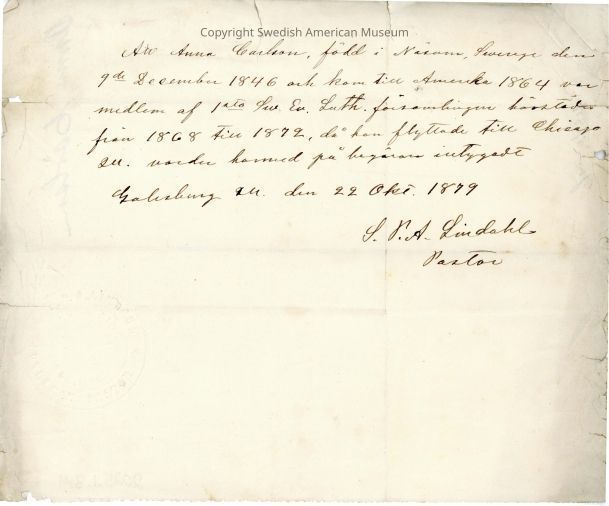 Copyright Swedish American Museum
Att Anna Carlson, född i Näsum, Sverige den
9de December 1846 och kom till Amerika 1864 var
medlem af 1sta Sv. Ev. Luth. församlingen härstädes
från 1868 till 1872, då hon flyttade till Chicago
Ill. varder härmed på begäran intygadt
Galesburg Ill. den 22 Okt. 1879
S. P. A. Lindahl
Pastor